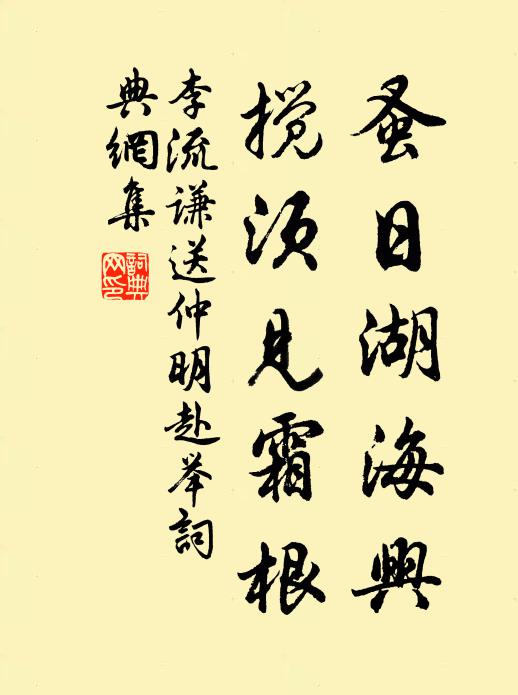 蚤日湖海興
攬須見霜根
李流謙送仲明赴举詞
典網集
詞典网印